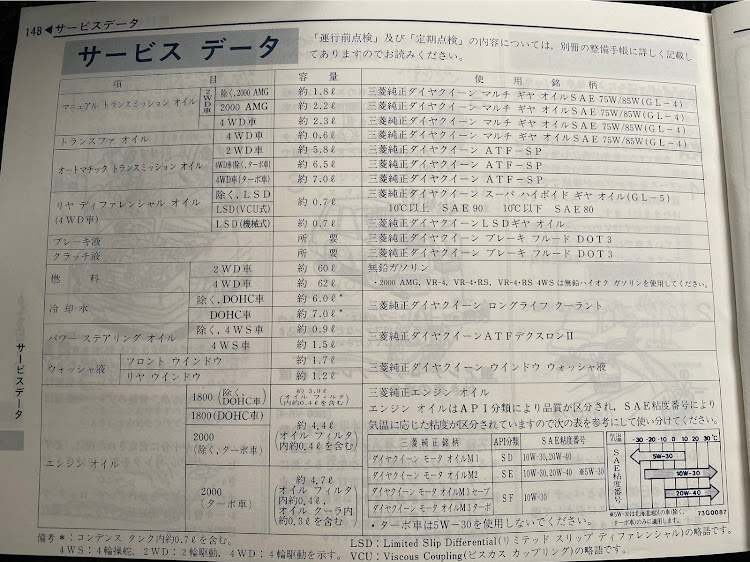 148◀サービスデータ
サービス データ
「運行前点検」及び「定期点検」の内容については、別冊の整備手帳に詳しく記載し
てありますのでお読みください。
項 目 容 量 使 用 銘 柄
マニュアル トランスミッション オイル 2WD車 除く,2000 AMG 約1.8ℓ 三菱純正ダイヤクイーン マルチ ギヤ オイルSAE 75W/85W(GL-4)
2000 AMG 約2.2ℓ 三菱純正ダイヤクイーン マルチ ギヤ オイルSAE 75W/85W(GL-4)
4WD車 約2.3ℓ 三菱純正ダイヤクイーン マルチ ギヤ オイルSAE 75W/85W(GL-4)
トランスファ オイル 4WD車 約0.6ℓ 三菱純正ダイヤクイーン マルチ ギヤ オイルSAE 75W/85W(GL-4)
オートマチック トランスミッション オイル 2WD車 約5.8ℓ 三菱純正ダイヤクイーン ATF-SP
4WD車(除く,ターボ車) 約6.5ℓ 三菱純正ダイヤクイーン ATF-SP
4WD車(ターボ車) 約7.0ℓ 三菱純正ダイヤクイーン ATF-SP
リヤ ディファレンシャル オイル (4WD車) 除く,LSD 約0.7ℓ 三菱純正ダイヤクイーン スーパ ハイポイド ギヤ オイル(GL-5)
LSD(VCU式) 10℃以上 SAE90 10℃以下 SAE80
LSD(機械式) 約0.7ℓ 三菱純正ダイヤクイーンLSDギヤ オイル
ブレーキ液 所 要 三菱純正ダイヤクイーン ブレーキ フルード DOT3
クラッチ液 所 要 三菱純正ダイヤクイーン ブレーキ フルード DOT3
燃 料 2WD車 約 60ℓ 無鉛ガソリン
4WD車 約 62ℓ ・2000 AMG, VR-4, VR-4・RS, VR-4・RS 4WSは無鉛ハイオク ガソリンを使用してください。
冷却水 除く,DOHC車 約6.0ℓ* 三菱純正ダイヤクイーン ロングライフ クーラント
DOHC車 約7.0ℓ*
パワー ステアリング オイル 除く,4WS車 約0.9ℓ 三菱純正ダイヤクイーンATFデクスロンII
4WS車 約1.5ℓ
ウォッシャ液 フロント ウインドウ 約1.7ℓ 三菱純正ダイヤクイーン ウインドウ ウォッシャ液
リヤ ウインドウ 約1.2ℓ
エンジン オイル 1800 (除く,DOHC車) 約3.9ℓ (オイル フィルタ内約0.4ℓを含む)
1800(DOHC車) 約4.4ℓ (オイル フィルタ内約0.4ℓを含む)
2000 (除く,ターボ車)
2000 (ターボ車) 約4.7ℓ オイル フィルタ内約0.4ℓ, オイル クーラ内約0.3ℓを含む
三菱純正エンジン オイル
エンジン オイルはAPI分類により品質が区分され,SAE粘度番号により
気温に応じた粘度が区分されていますので次の表を参考にして使い分けてください。
三菱純正銘柄 API分類 SAE粘度番号
ダイヤクイーン モータ オイルM1 SD 10W-30,20W-40
ダイヤクイーン モータ オイルM2 SE 10W-30,20W-40 ※5W-30
ダイヤクイーン モータ オイルM3セーブ SF 10W-30
ダイヤクイーン モータ オイルM3ターボ
気温 -30 -20 -10 0 10 20 30℃
SAE粘度番号
5W-30
10W-30
20W-40
※5W-30は北海道地区の車(除く,
ターボ車)のみに適用します。 73G0087
・ターボ車は5W-30を使用しないでください。
備考 *:コンデンス タンク内約0.7ℓを含む。 LSD:Limited Slip Differential(リミテッド スリップ ディファレンシャル)の略語です。
4WS:4輪操舵, 2WD:2輪駆動, 4WD:4輪駆動を示す。 VCU:Viscous Coupling(ビスカス カップリング)の略語です。
サービスデータ